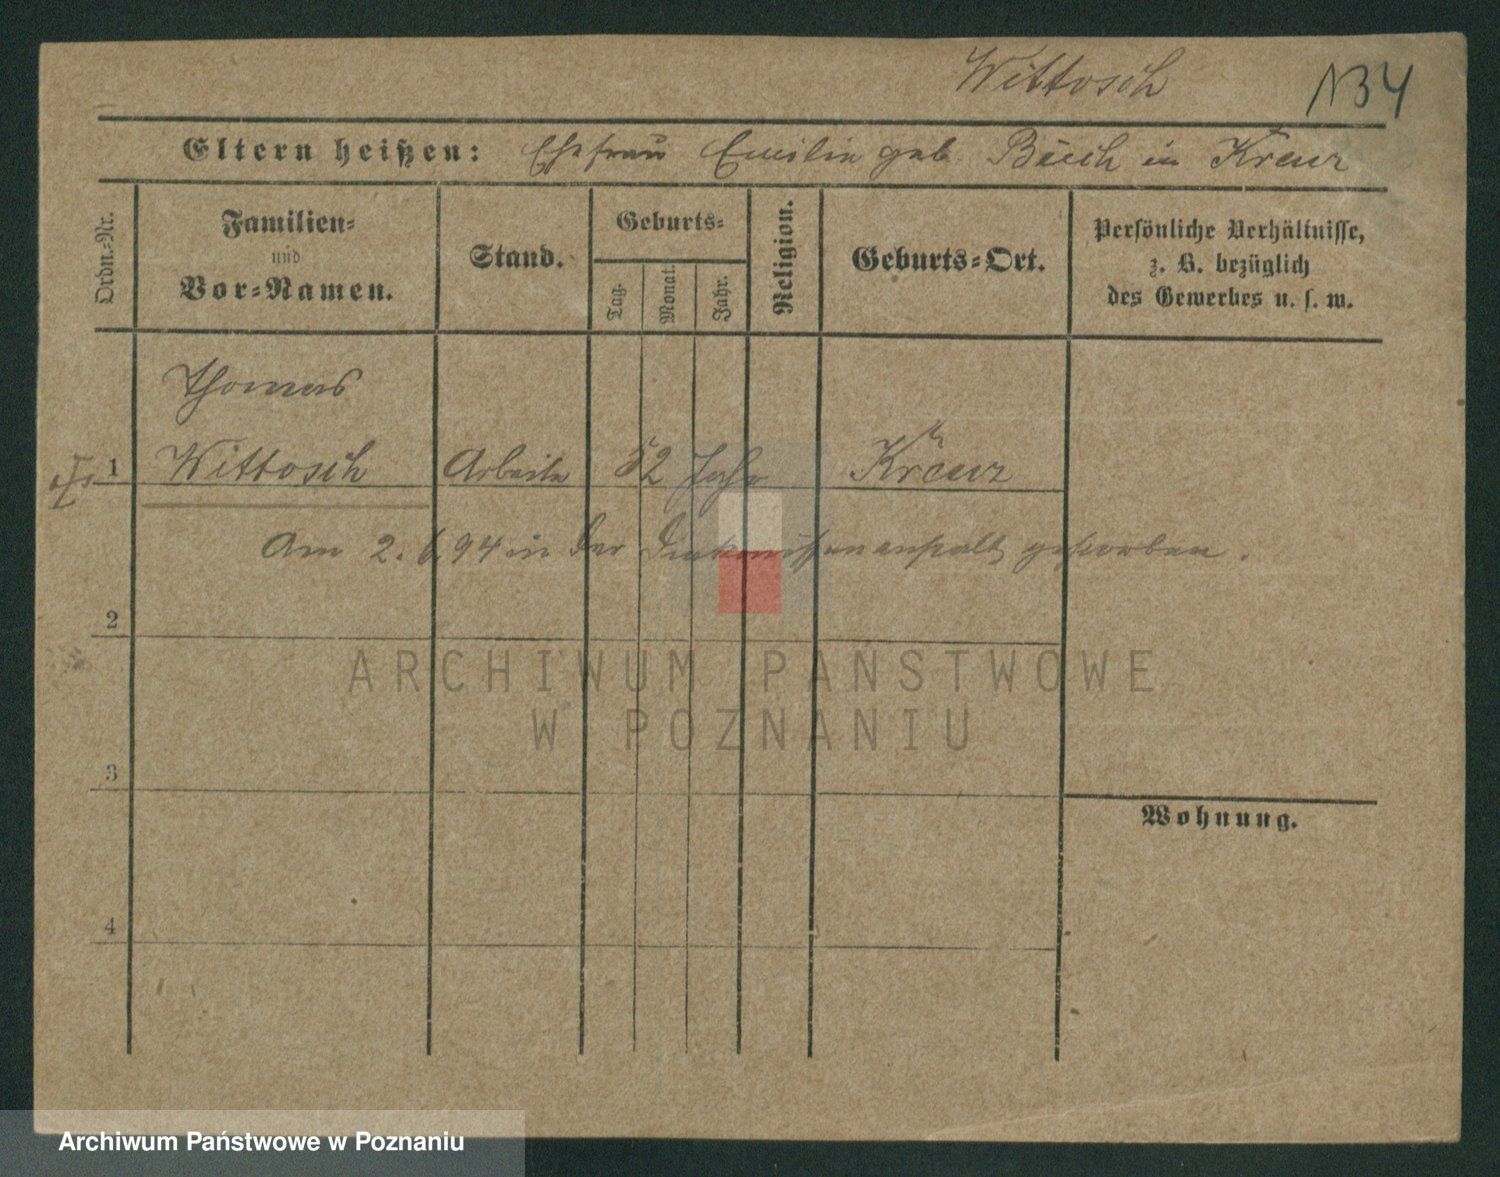 Wittosch
N34
Eltern heißen: Ehefrau Emilie geb. Busch in Kreuz
Ordn.-Nr.
Familien-
und
Vor-Namen.
Stand.
Geburts-
Tag.
Monat.
Jahr.
Religion.
Geburts-Ort.
Persönliche Verhältnisse,
z. B. bezüglich
des Gewerbes u. s. w.
Thomas
1 Wittosch Arbeiter 52 Jahr Kreuz
Am 2. 6. 94 in der Diakonissenanstalt gestorben.
2
3
4
Wohnung.
ARCHIWUM PAŃSTWOWE
W POZNANIU
Archiwum Państwowe w Poznaniu